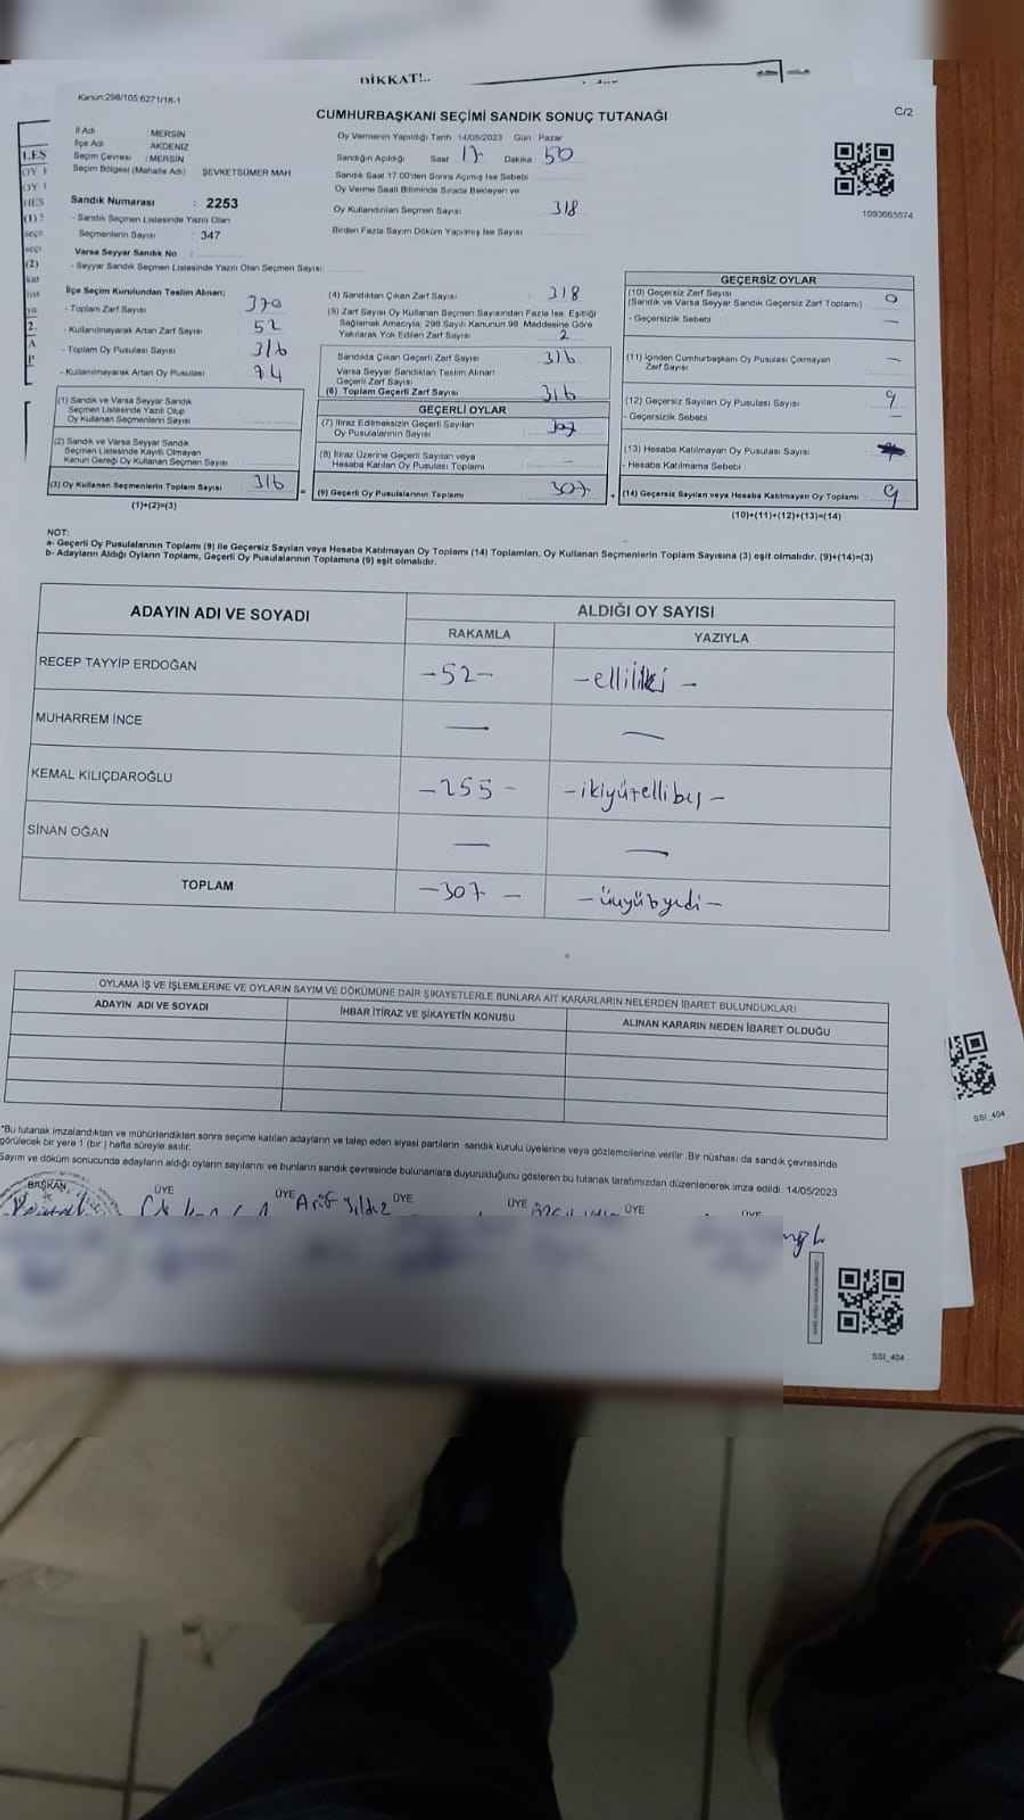 DİKKAT!..
Kanun:298/105:6271/18-1
C/2
CUMHURBAŞKANI SEÇİMİ SANDIK SONUÇ TUTANAĞI
İl Adı : MERSİN
İlçe Adı AKDENİZ
Seçim Çevresi : MERSİN
Seçim Bölgesi (Mahalle Adı) ŞEVKETSÜMER MAH
Sandık Numarası : 2253
- Sandık Seçmen Listesinde Yazılı Olan
Seçmenlerin Sayısı : 347
Varsa Seyyar Sandık No :
- Seyyar Sandık Seçmen Listesinde Yazılı Olan Seçmen Sayısı:
Oy Vermenin Yapıldığı Tarih 14/05/2023 Gün Pazar
Sandığın Açıldığı Saat 17 Dakika 50
Sandık Saat 17.00'den Sonra Açılmış İse Sebebi
Oy Verme Saati Bitiminde Sırada Bekleyen ve
Oy Kullandırılan Seçmen Sayısı 318
Birden Fazla Sayım Döküm Yapılmış İse Sayısı
1093065574
İlçe Seçim Kurulundan Teslim Alınan;
- Toplam Zarf Sayısı 370
- Kullanılmayarak Artan Zarf Sayısı 52
- Toplam Oy Pusulası Sayısı 316
- Kullanılmayarak Artan Oy Pusulası 94
(1) Sandık ve Varsa Seyyar Sandık
Seçmen Listesinde Yazılı Olup
Oy Kullanan Seçmenlerin Sayısı
(2) Sandık ve Varsa Seyyar Sandık
Seçmen Listesinde Kayıtlı Olmayan
Kanun Gereği Oy Kullanan Seçmen Sayısı
(3) Oy Kullanan Seçmenlerin Toplam Sayısı 316
(1)+(2)=(3)
(4) Sandıktan Çıkan Zarf Sayısı : 318
(5) Zarf Sayısı Oy Kullanan Seçmen Sayısından Fazla İse, Eşitliği
Sağlamak Amacıyla, 298 Sayılı Kanunun 98. Maddesine Göre
Yakılarak Yok Edilen Zarf Sayısı 2
Sandıkta Çıkan Geçerli Zarf Sayısı 316
Varsa Seyyar Sandıktan Teslim Alınan
Geçerli Zarf Sayısı
(6) Toplam Geçerli Zarf Sayısı 316
GEÇERLİ OYLAR
(7) İtiraz Edilmeksizin Geçerli Sayılan
Oy Pusulalarının Sayısı 307
(8) İtiraz Üzerine Geçerli Sayılan veya
Hesaba Katılan Oy Pusulası Toplamı —
(9) Geçerli Oy Pusulalarının Toplamı 307
GEÇERSİZ OYLAR
(10) Geçersiz Zarf Sayısı
(Sandık ve Varsa Seyyar Sandık Geçersiz Zarf Toplamı) 0
- Geçersizlik Sebebi —
(11) İçinden Cumhurbaşkanı Oy Pusulası Çıkmayan
Zarf Sayısı —
(12) Geçersiz Sayılan Oy Pusulası Sayısı 9
- Geçersizlik Sebebi —
(13) Hesaba Katılmayan Oy Pusulası Sayısı
- Hesaba Katılmama Sebebi
(14) Geçersiz Sayılan veya Hesaba Katılmayan Oy Toplamı 9
(10)+(11)+(12)+(13)=(14)
NOT:
a- Geçerli Oy Pusulalarının Toplamı (9) ile Geçersiz Sayılan veya Hesaba Katılmayan Oy Toplamı (14) Toplamları, Oy Kullanan Seçmenlerin Toplam Sayısına (3) eşit olmalıdır. (9)+(14)=(3)
b- Adayların Aldığı Oyların Toplamı, Geçerli Oy Pusulalarının Toplamına (9) eşit olmalıdır.
ADAYIN ADI VE SOYADI ALDIĞI OY SAYISI
RAKAMLA YAZIYLA
RECEP TAYYİP ERDOĞAN -52- -elliiki-
MUHARREM İNCE — —
KEMAL KILIÇDAROĞLU -255- -ikiyüzellibeş-
SİNAN OĞAN — —
TOPLAM -307- -üçyüzyedi-
OYLAMA İŞ VE İŞLEMLERİNE VE OYLARIN SAYIM VE DÖKÜMÜNE DAİR ŞİKAYETLERLE BUNLARA AİT KARARLARIN NELERDEN İBARET BULUNDUKLARI
ADAYIN ADI VE SOYADI İHBAR İTİRAZ VE ŞİKAYETİN KONUSU ALINAN KARARIN NEDEN İBARET OLDUĞU
*Bu tutanak imzalandıktan ve mühürlendikten sonra seçime katılan adayların ve talep eden siyasi partilerin sandık kurulu üyelerine veya gözlemcilerine verilir. Bir nüshası da sandık çevresinde
görülecek bir yere 1 (bir) hafta süreyle asılır.
Sayım ve döküm sonucunda adayların aldığı oyların sayılarını ve bunların sandık çevresinde bulunanlara duyurulduğunu gösteren bu tutanak tarafımızdan düzenlenerek imza edildi. 14/05/2023
BAŞKAN ÜYE ÜYE ÜYE ÜYE ÜYE ÜYE
Arif Yıldız
SSI_404
SSI_404